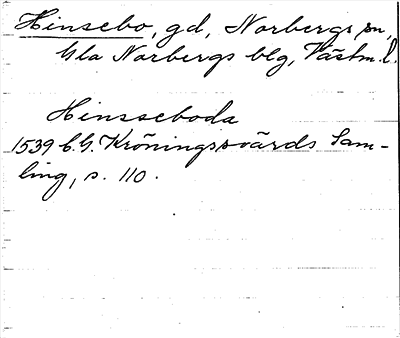 Hinsebo, gd, Norbergs sn,
Gla Norbergs blg, Västm. l.
Hinsseboda
1539 C.G. Kröningssvärds Sam-
ling, s. 110.